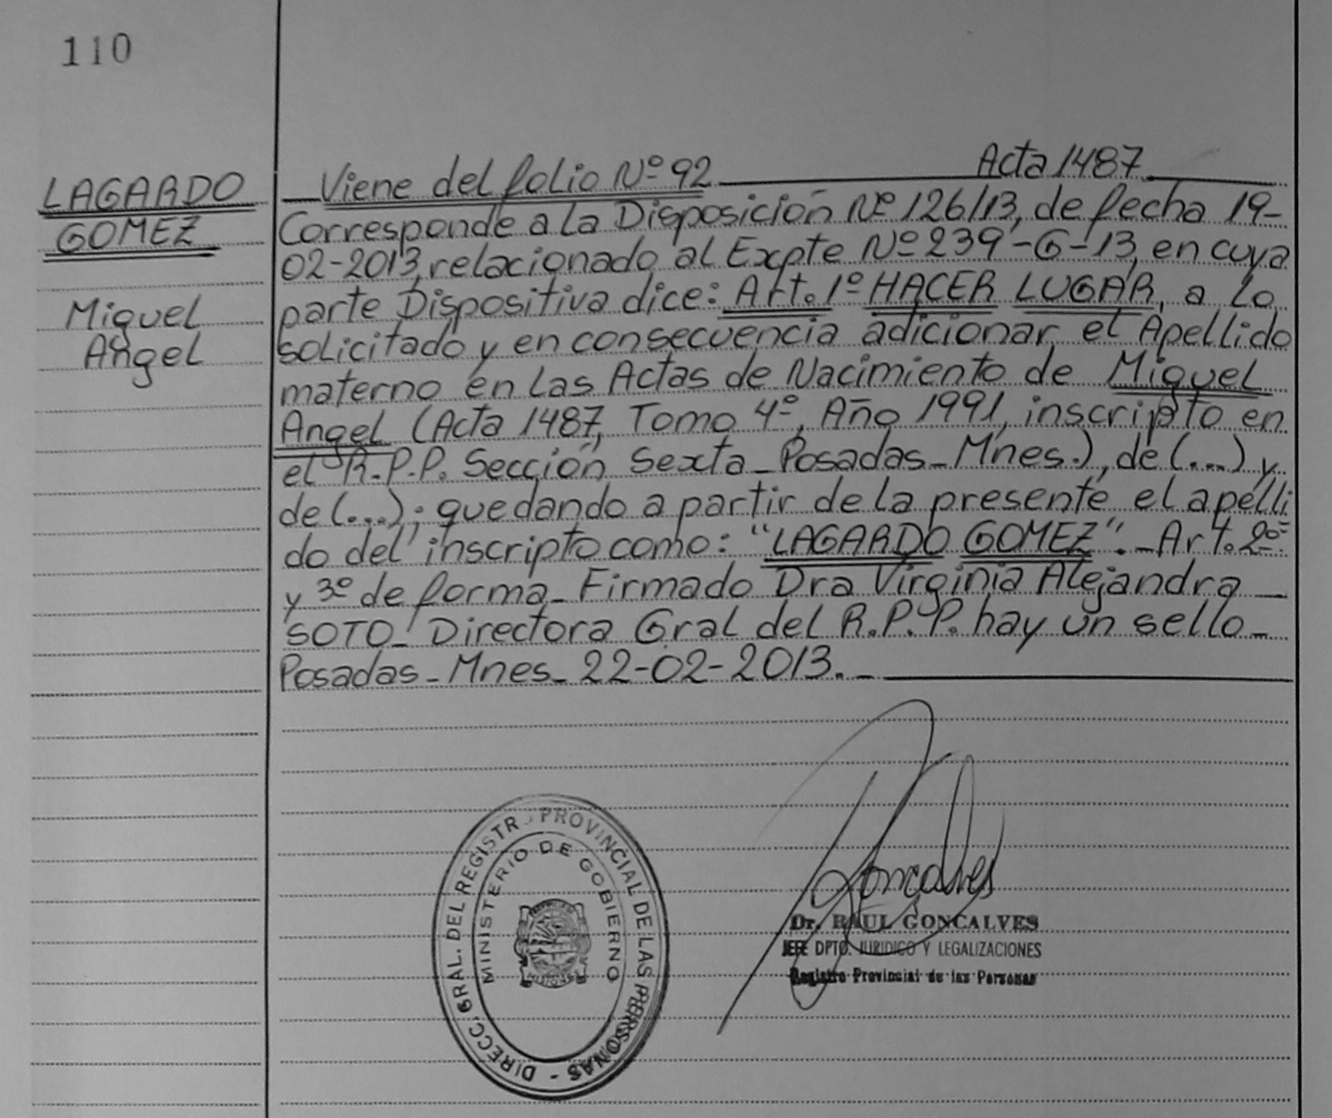 110
LAGARDO
GOMEZ
Miguel
Angel
Viene del folio Nº 92 Acta 1487
Corresponde a la Disposición Nº 126/13, de fecha 19-
02-2013, relacionado al Expte Nº 239-G-13, en cuya
parte Dispositiva dice: Art. 1º HACER LUGAR, a lo
solicitado y en consecuencia adicionar el Apellido
materno en las Actas de Nacimiento de Miguel
Angel (Acta 1487, Tomo 4º, Año 1991, inscripto en
el R.P.P. Sección Sexta_Posadas_Mnes.), de (...) y
de (...); quedando a partir de la presente el apelli
do del inscripto como: "LAGARDO GOMEZ"._Art. 2º
y 3º de forma_Firmado Dra Virginia Alejandra_
SOTO_Directora Gral del R.P.P. hay un sello_
Posadas_Mnes_22-02-2013._
DIRECC. GRAL. DEL REGISTR. PROVINCIAL DE LAS PERSONAS -
MINISTERIO DE GOBIERNO
Goncalves
Dr. RAUL GONCALVES
JEFE DPTO. JURIDICO Y LEGALIZACIONES
Registro Provincial de las Personas